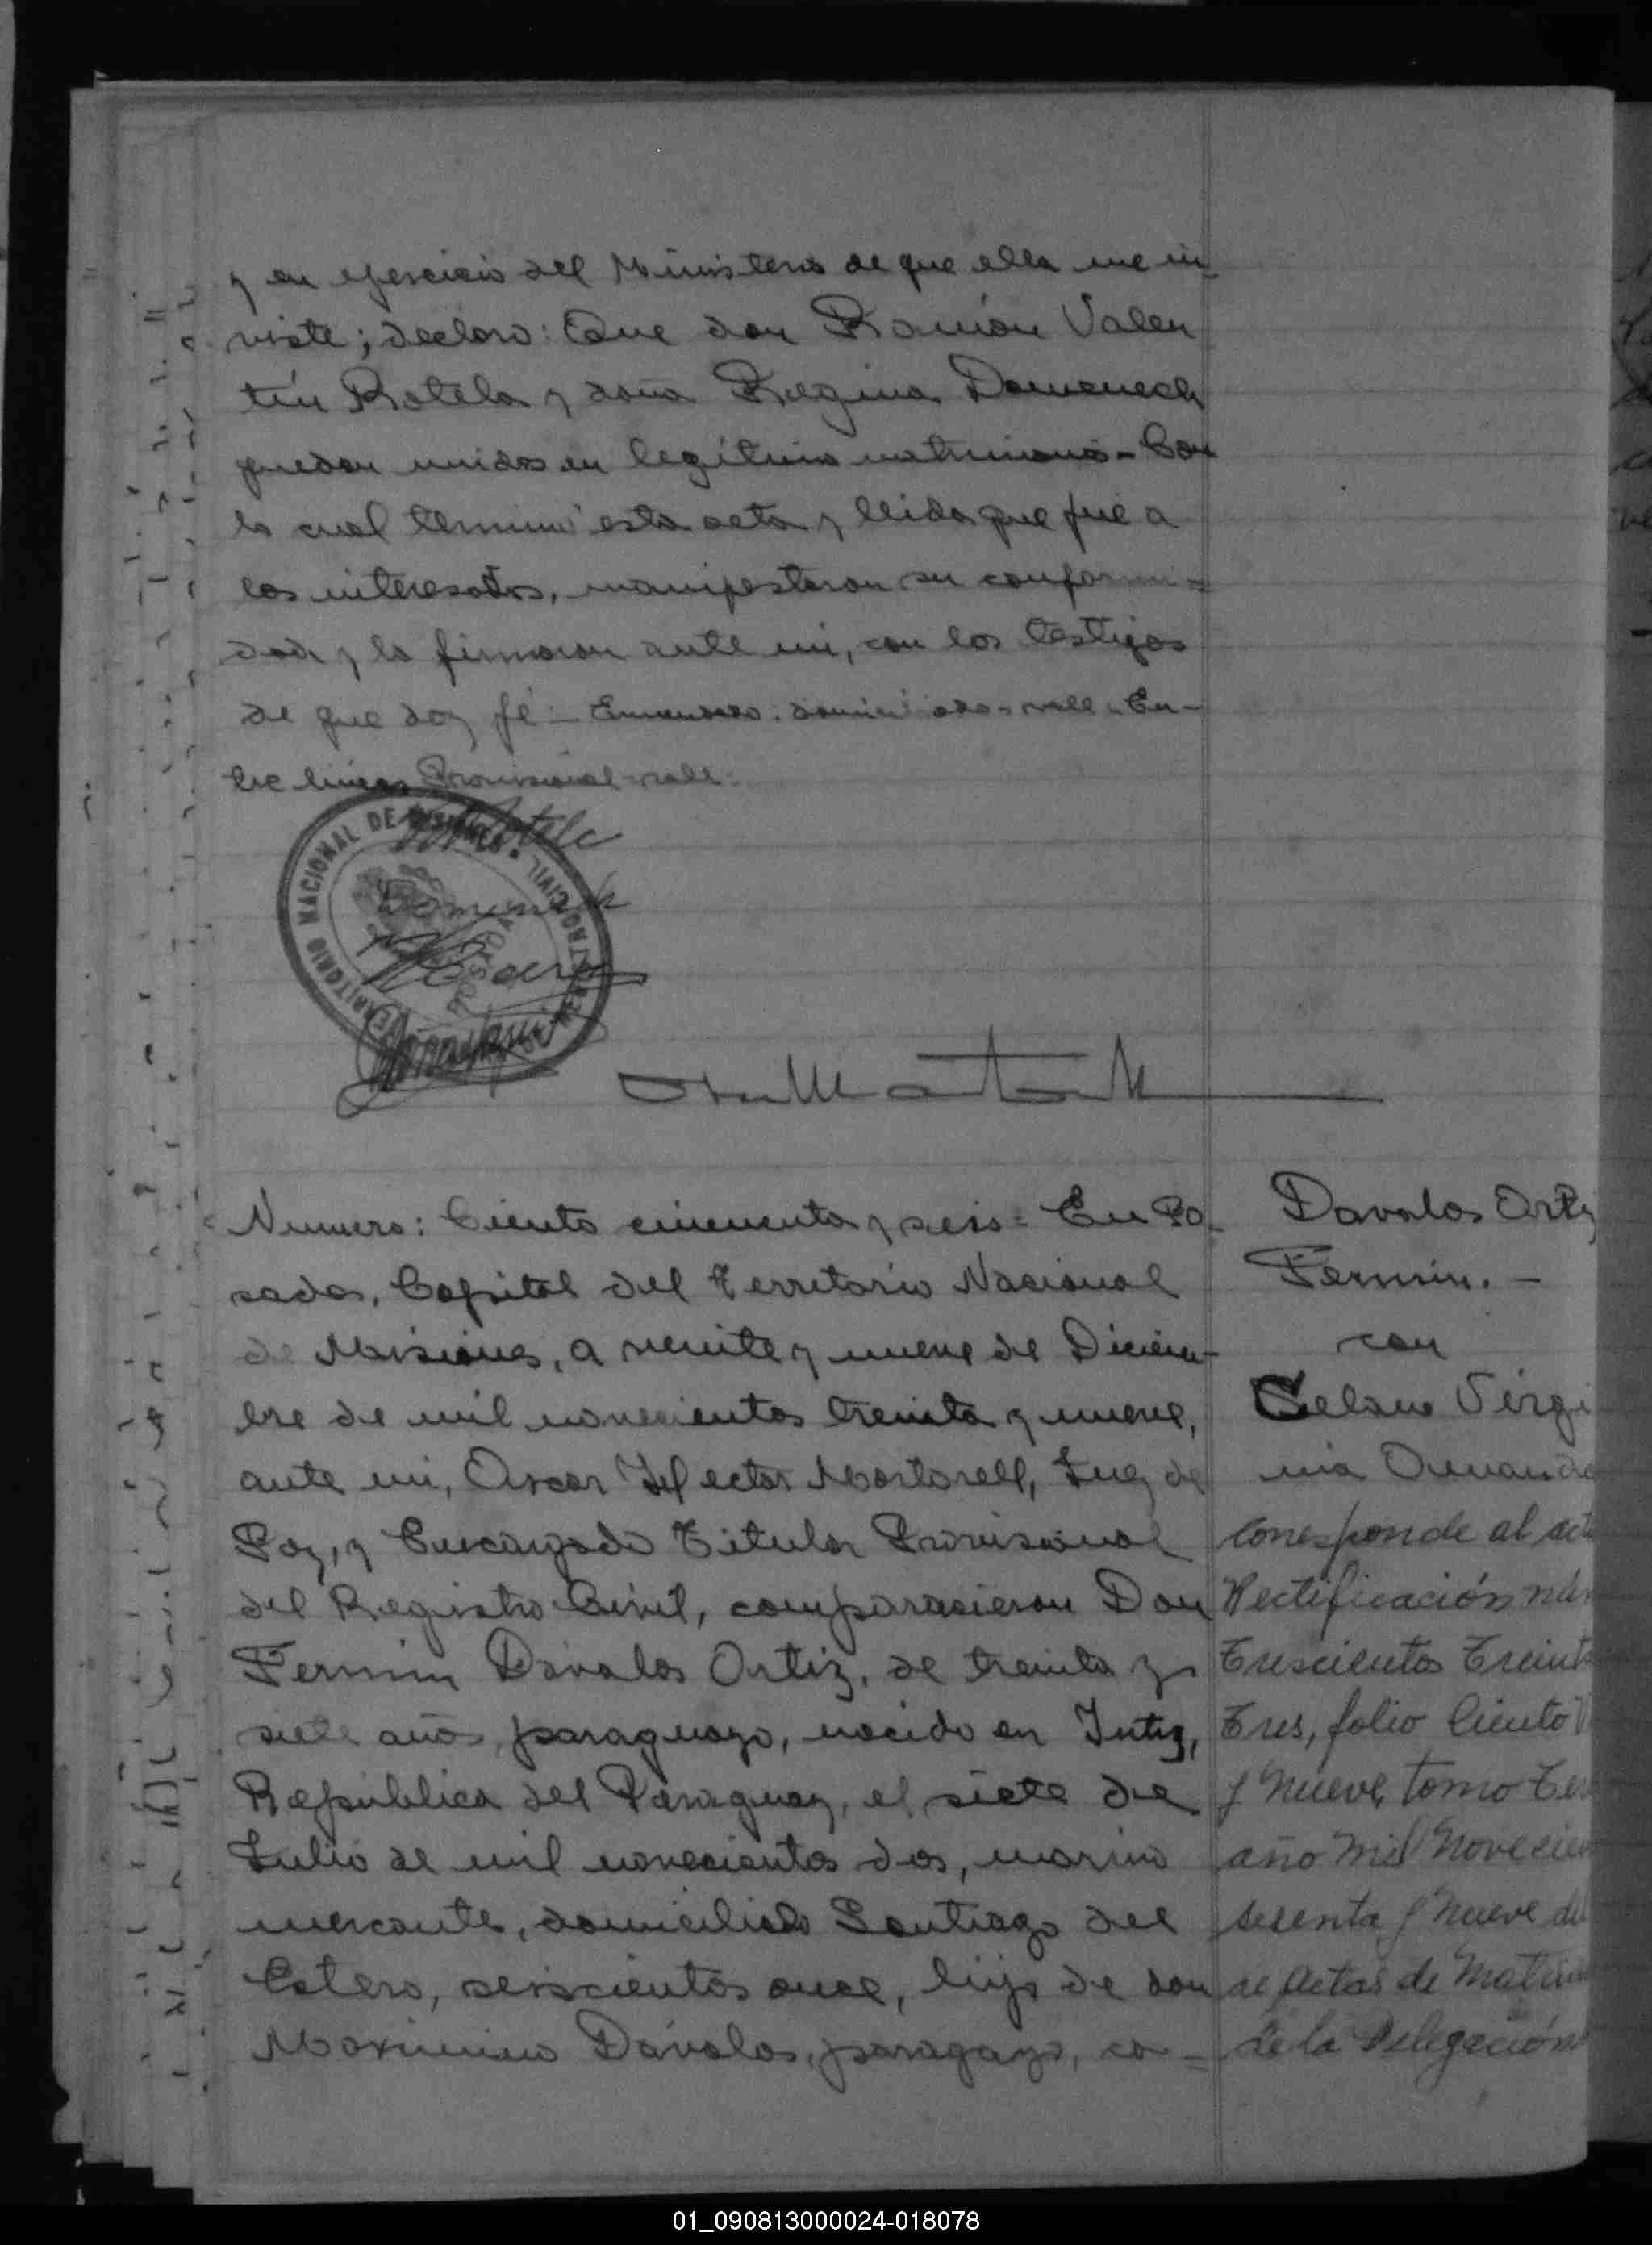 y en ejercicio del Ministerio de que ella me in
viste; declaro: Que don Ramón Valen
tín Rotela y doña Regina Domenech
quedan unidos en legítimo matrimonio - Con
lo cual terminó esta acta y leida que fue a
los interesados, manifestaron su conformi=
dad y la firmaron ante mi, con los testigos
de que doy fé - Enmendado: domiciliado = vale = En-
tre lineas Provisional = vale.
TERRITORIO NACIONAL DE MISIONES
CIVIL
POSADAS
Rotela
Domenech
Número: Ciento cincuenta y seis = En Po
sadas, Capital del Territorio Nacional
de Misiones, a veinte y nueve de Diciem-
bre de mil novecientos treinta y nueve,
ante mi, Oscar Hector Martorell, Juez de
Paz, y Encargado Titular Provisional
del Registro Civil, comparacieron Don
Fermin Dávalos Ortiz, de treinta y
siete años, paraguayo, nacido en
República del Paraguay, el siete de
Julio de mil novecientos dos, marino
mercante, domiciliado Santiago del
Estero, seiscientos once, hijo de don
Maximino Dávalos, paragayo, co=
Davalos Ortiz
Fermin. -
con
Celano Virgi
nia Amanda
Corresponde al acta
Rectificación núm
Trescientos Treinta
Tres, folio Ciento
y Nueve, tomo
año Mil Novecien
sesenta y Nueve del
de Actas de Matrim
de la Delegación